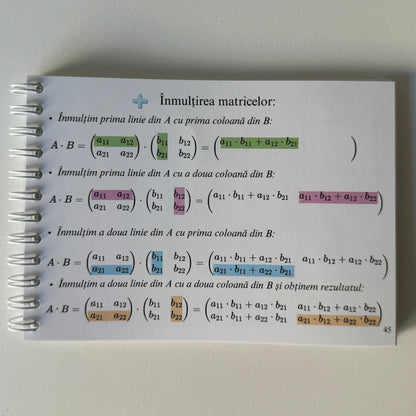 Înmulțirea matricelor:
• Înmulțim prima linie din A cu prima coloană din B:
A · B = (a₁₁ a₁₂ a₂₁ a₂₂) · (b₁₁ b₁₂ b₂₁ b₂₂) = (a₁₁ · b₁₁ + a₁₂ · b₂₁ )
• Înmulțim prima linie din A cu a doua coloană din B:
A · B = (a₁₁ a₁₂ a₂₁ a₂₂) · (b₁₁ b₁₂ b₂₁ b₂₂) = (a₁₁ · b₁₁ + a₁₂ · b₂₁ a₁₁ · b₁₂ + a₁₂ · b₂₂)
• Înmulțim a doua linie din A cu prima coloană din B:
A · B = (a₁₁ a₁₂ a₂₁ a₂₂) · (b₁₁ b₁₂ b₂₁ b₂₂) = (a₁₁ · b₁₁ + a₁₂ · b₂₁ a₁₁ · b₁₂ + a₁₂ · b₂₂ a₂₁ · b₁₁ + a₂₂ · b₂₁ )
• Înmulțim a doua linie din A cu a doua coloană din B și obținem rezultatul:
A · B = (a₁₁ a₁₂ a₂₁ a₂₂) · (b₁₁ b₁₂ b₂₁ b₂₂) = (a₁₁ · b₁₁ + a₁₂ · b₂₁ a₁₁ · b₁₂ + a₁₂ · b₂₂ a₂₁ · b₁₁ + a₂₂ · b₂₁ a₂₁ · b₁₂ + a₂₂ · b₂₂)
45